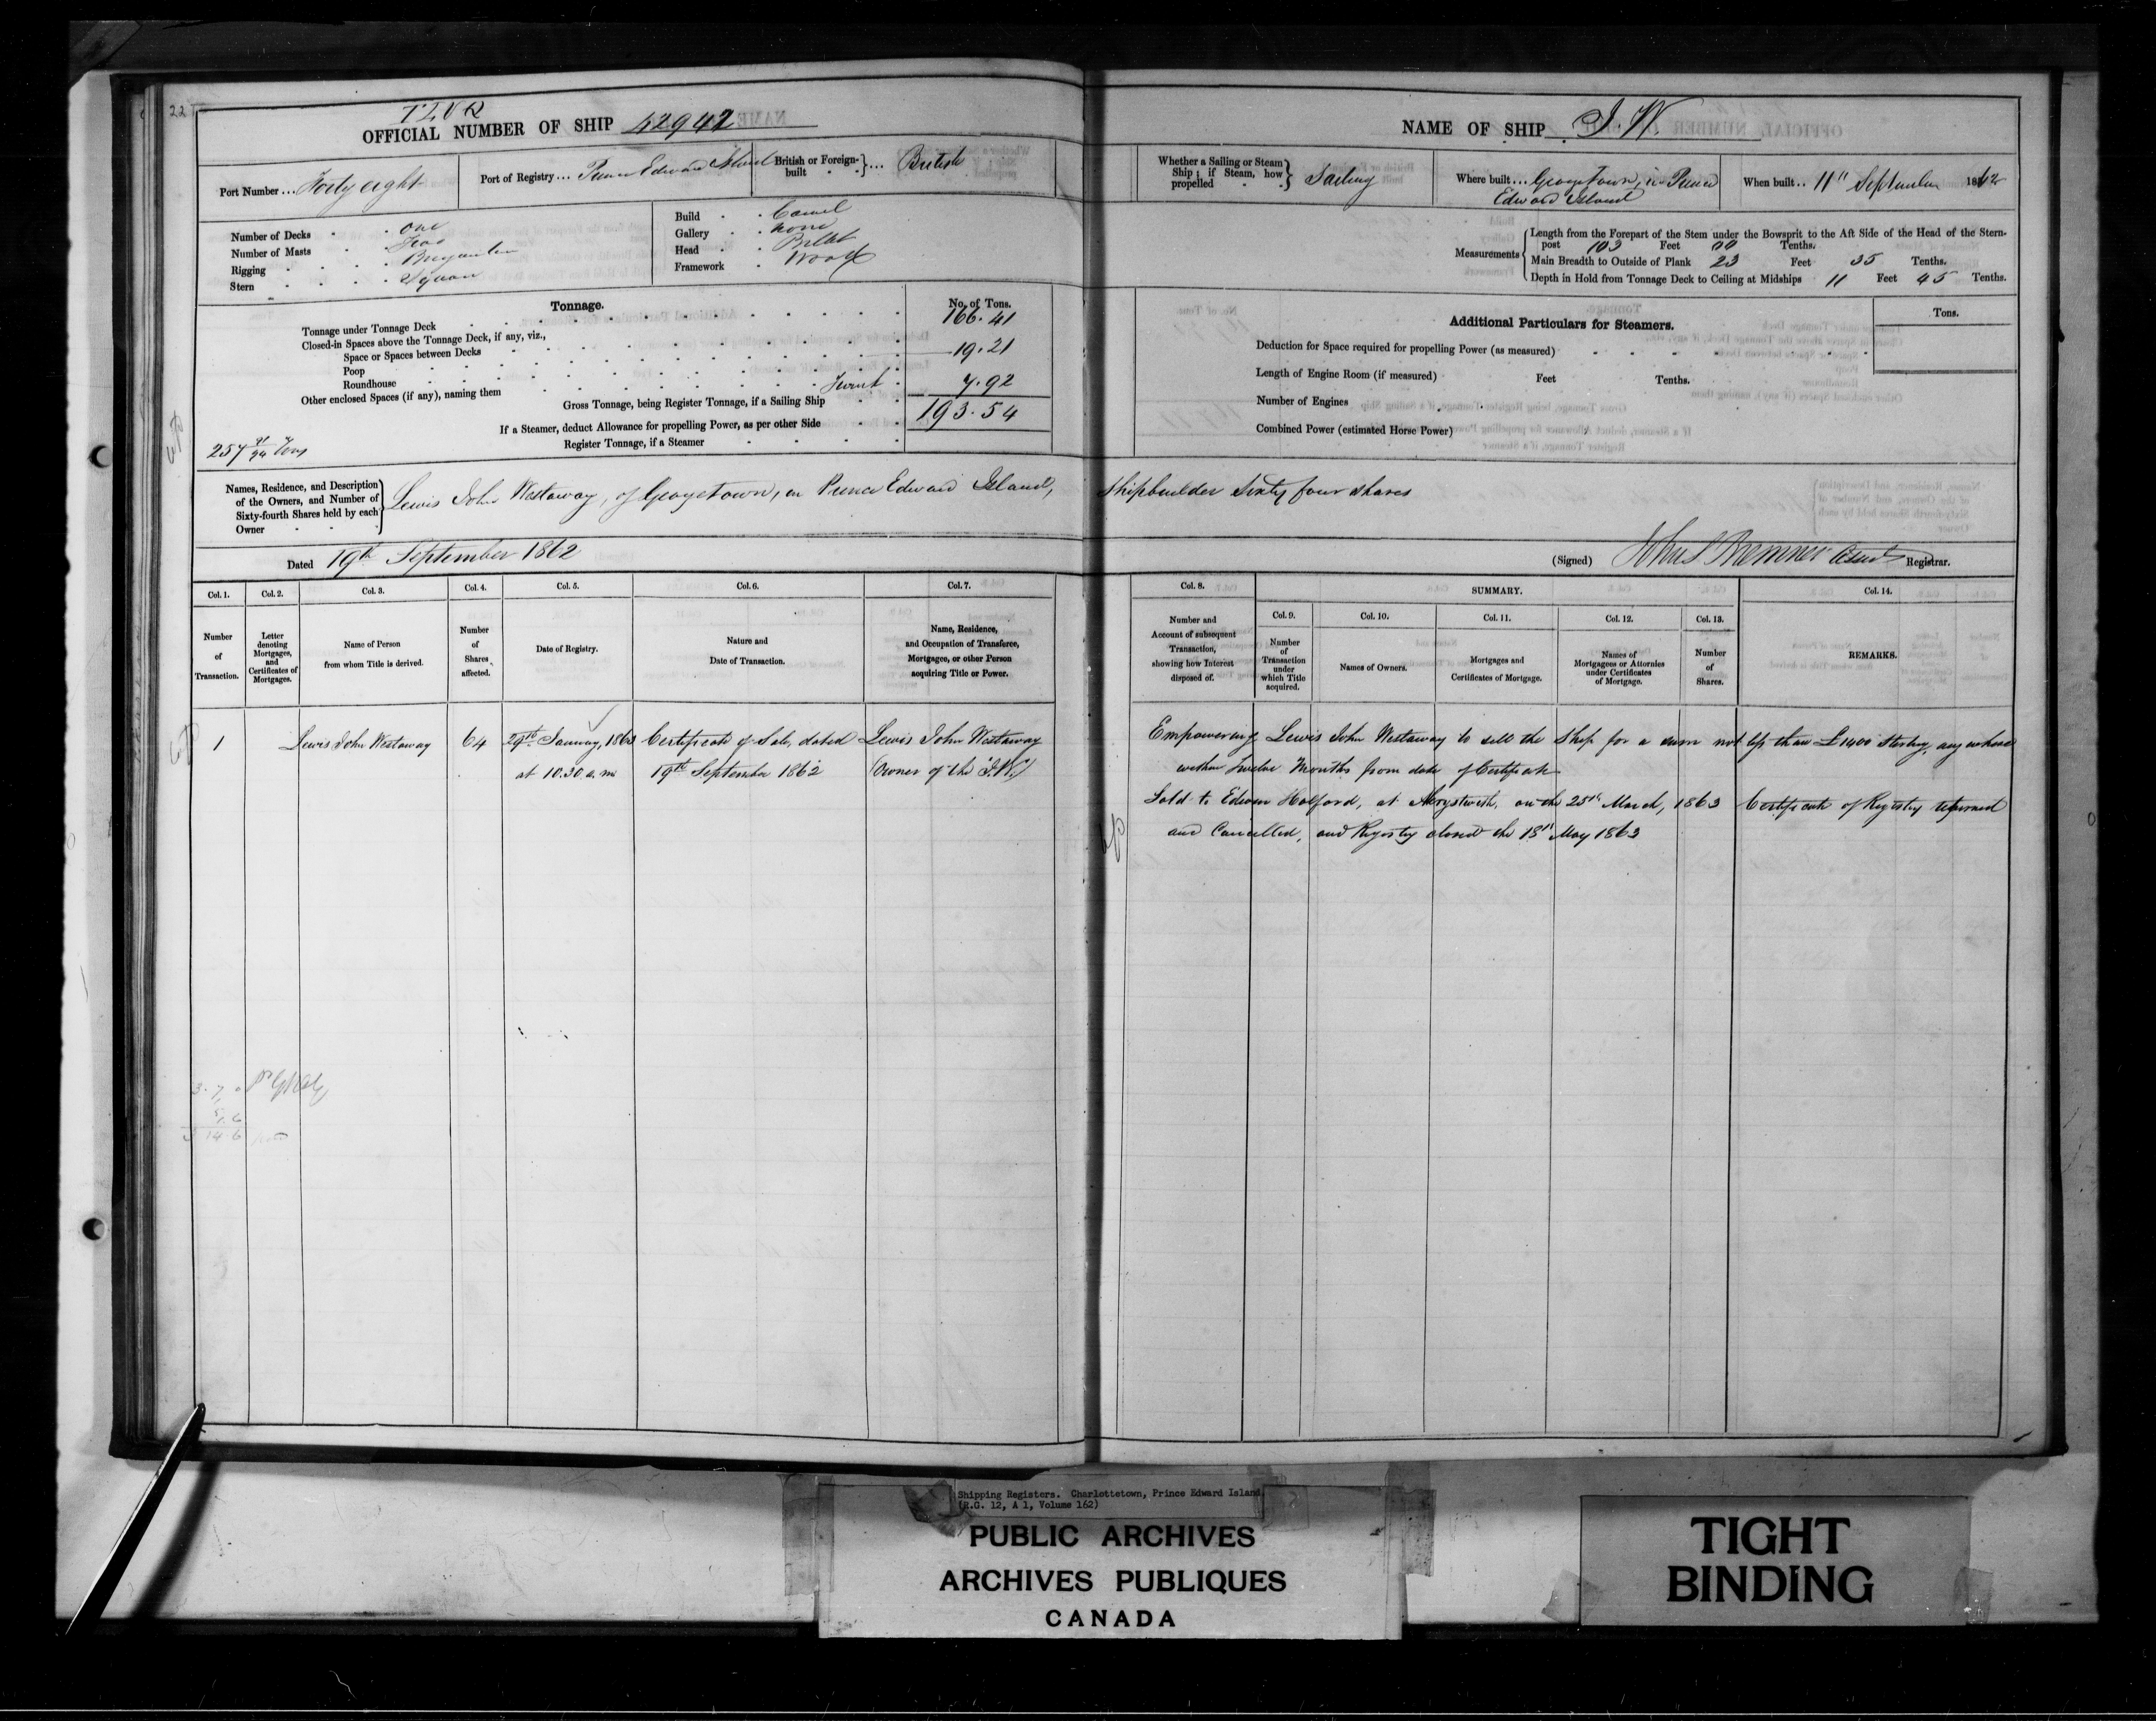 22
TLVR
OFFICIAL NUMBER OF SHIP 42942
Port Number ... Forty eight
Port of Registry ... Prince Edward Island
British or Foreign-built ... British
Number of Decks . . One
Number of Masts . . Two
Rigging . . . . Brigantine
Stern . . . . Square
Build . . Carvel
Gallery . . none
Head . . Billet
Framework . Wood
Tonnage.
No. of Tons.
Tonnage under Tonnage Deck 166.41
Closed-in Spaces above the Tonnage Deck, if any, viz.,
Space or Spaces between Decks
Poop 19.21
Roundhouse
Other enclosed Spaces (if any), naming them 7.92
Gross Tonnage, being Register Tonnage, if a Sailing Ship 193.54
If a Steamer, deduct Allowance for propelling Power, as per other Side
Register Tonnage, if a Steamer
257 91/94 Tons
Names, Residence, and Description of the Owners, and Number of Sixty-fourth Shares held by each Owner
Lewis John Westaway, of Georgetown, in Prince Edward Island,
Dated 19th September 1862
Col. 1. Col. 2. Col. 3. Col. 4. Col. 5. Col. 6. Col. 7.
Number of Transaction.
Letter denoting Mortgages, and Certificates of Mortgages.
Name of Person from whom Title is derived.
Number of Shares affected.
Date of Registry.
Nature and Date of Transaction.
Name, Residence, and Occupation of Transferee, Mortgagee, or other Person acquiring Title or Power.
1 Lewis John Westaway 64 29th January, 1863 Certificate of Sale, dated Lewis John Westaway
at 10.30 a.m 19th September 1862 (Owner of the "J.W.")
3.7
5.6
14 6
NAME OF SHIP J. W
Whether a Sailing or Steam Ship; if Steam, how propelled Sailing
Where built ... Georgetown, in Prince
Edward Island
When built .. 11" September 1862
Measurements
Length from the Forepart of the Stem under the Bowsprit to the Aft Side of the Head of the Stern-
post 103 Feet 00 Tenths.
Main Breadth to Outside of Plank 23 Feet 35 Tenths.
Depth in Hold from Tonnage Deck to Ceiling at Midships 11 Feet 45 Tenths.
Additional Particulars for Steamers.
Tons.
Deduction for Space required for propelling Power (as measured)
Length of Engine Room (if measured) Feet Tenths.
Number of Engines
Combined Power (estimated Horse Power)
Shipbuilder Sixty four shares
(Signed) Registrar.
Col. 8. SUMMARY. Col. 14.
Col. 9. Col. 10. Col. 11. Col. 12. Col. 13.
Number and Account of subsequent Transaction, showing how Interest disposed of.
Number of Transaction under which Title acquired.
Names of Owners.
Mortgages and Certificates of Mortgage.
Names of Mortgagees or Attornies under Certificates of Mortgage.
Number of Shares.
REMARKS.
Empowering Lewis John Westaway to sell the Ship for a sum not less than £1400 Sterling, any where
within Twelve Months from date of Certificate
Sold to Edwin Holford, at Aberystwith, on the 25th March, 1863 Certificate of Registry returned
and Cancelled, and Registry closed the 13" May 1863
Shipping Registers. Charlottetown, Prince Edward Island
(R.G. 12, A 1, Volume 162)
PUBLIC ARCHIVES
ARCHIVES PUBLIQUES
CANADA
TIGHT
BINDING